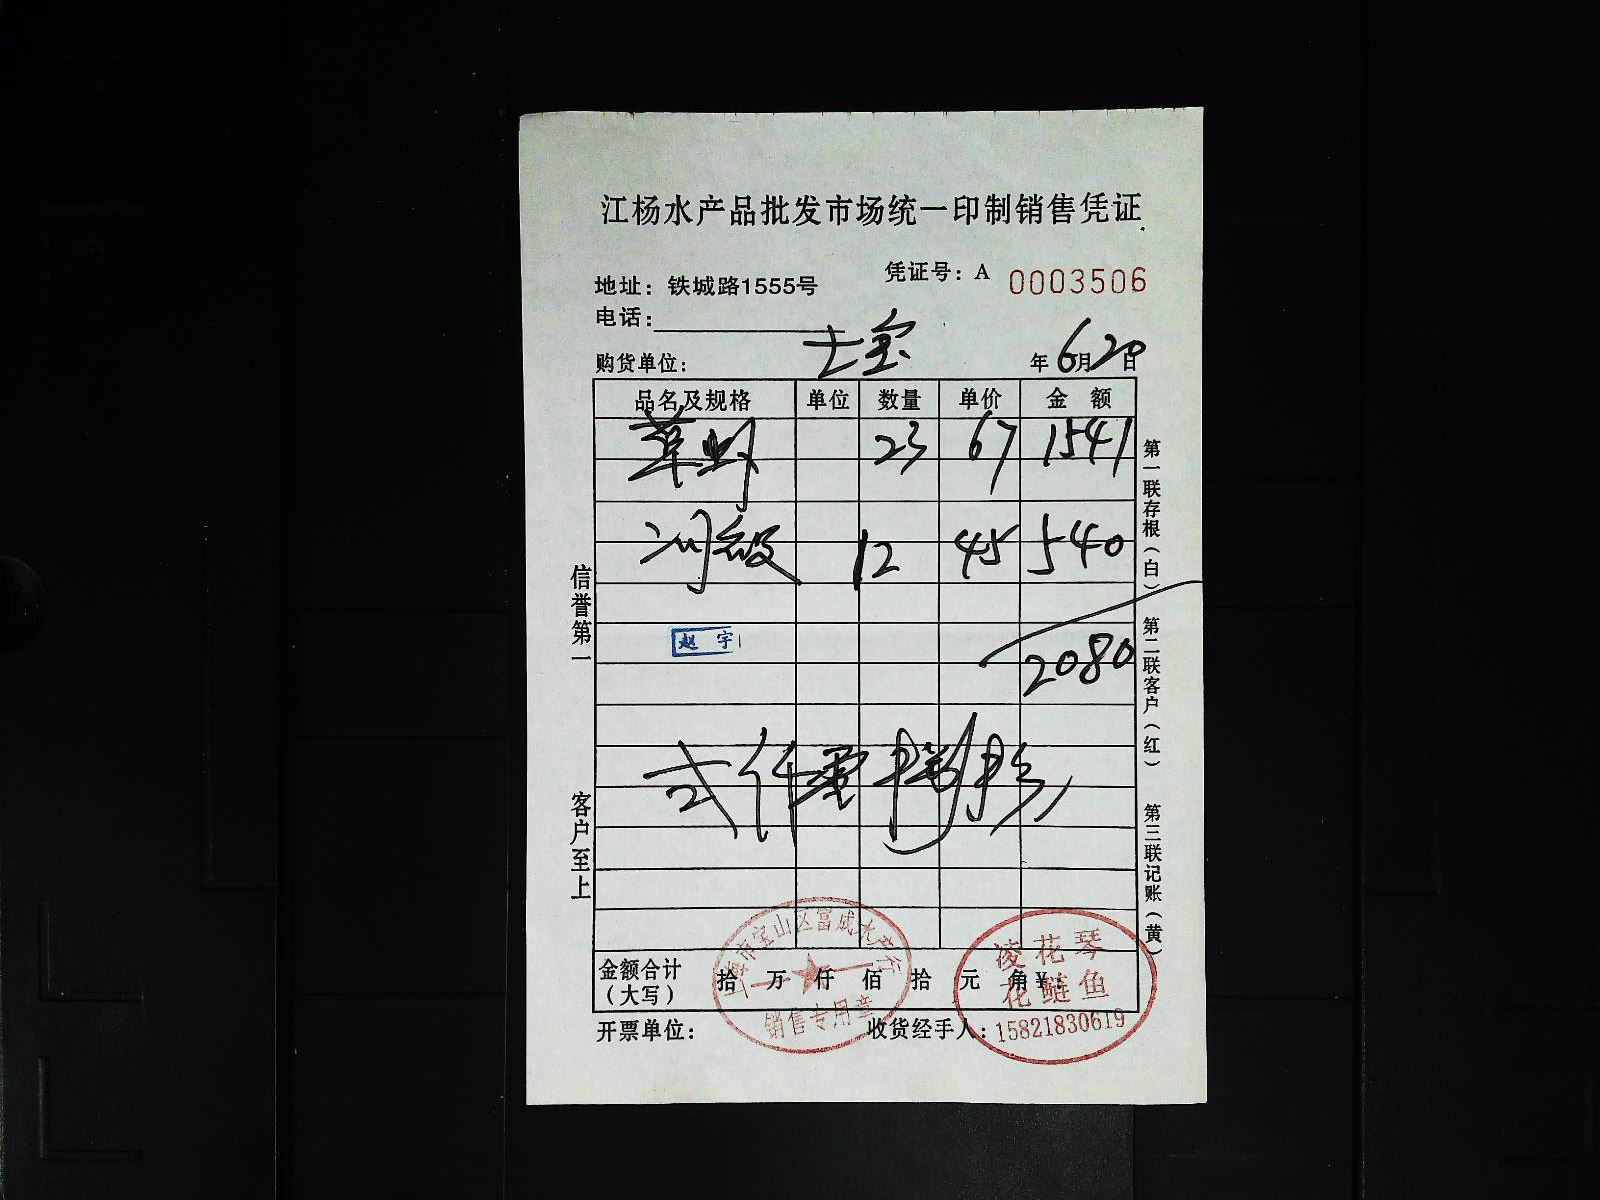 江杨水产品批发市场统一印制销售凭证
凭证号：A 0003506
地址：铁城路1555号
电话：
购货单位： 士宝 年 6月20日
品名及规格 单位 数量 单价 金 额
草虾 23 67 1541
12 45 540
赵 宇
2080
弍仟零捌拾
金额合计（大写） 拾 万 仟 佰 拾 元 角 ¥：
开票单位： 收货经手人：
信誉第一 客户至上
第一联存根（白） 第二联客户（红） 第三联记账（黄）
上海市宝山区富成水产行
销售专用章
凌花琴
花鲢鱼
15821830619